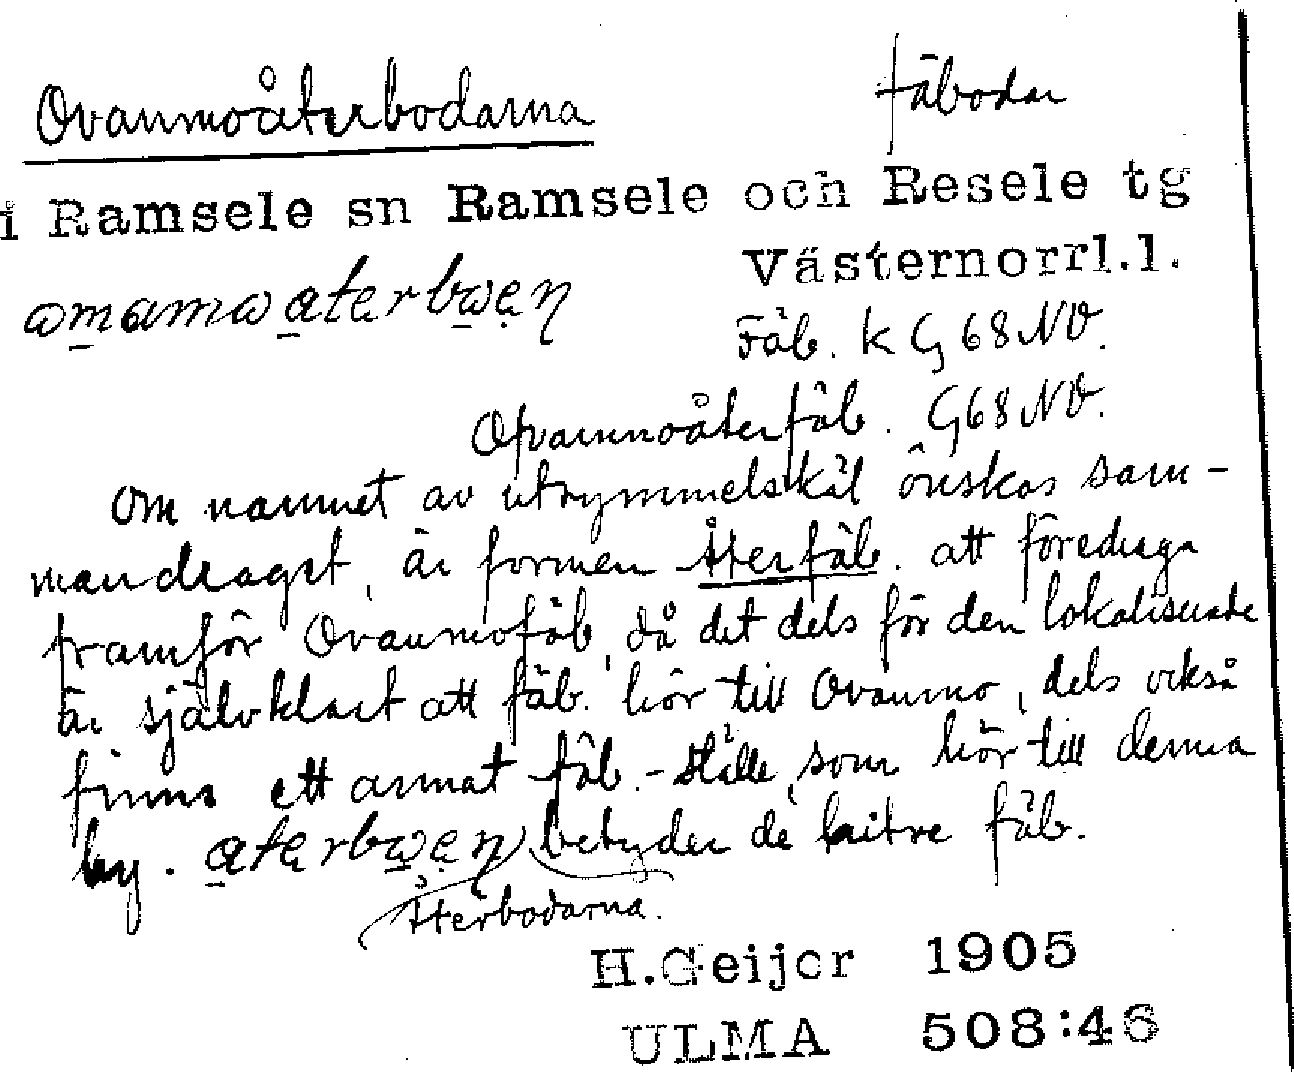 Ovanmoåterbodarna fäbodar
i Ramsele sn Ramsele och Resele tg
Västernorrl.l.
Fäb. k G 68 NO.
Ofvanmoåterfäb. G 68 NO.
Om namnet av utrymmelskäl önskas sam-
mandraget, är formen Återfäb. att föredraga
framför Ovanmofäb, då det dels för den lokaliserade
är självklart att fäb. hör till Ovanmo, dels också
finns ett annat fäb.-ställe, som hör till denna
by. betyder de bitre fäb.
Återbodarna.
H.Geijer 1905
ULMA 508:46